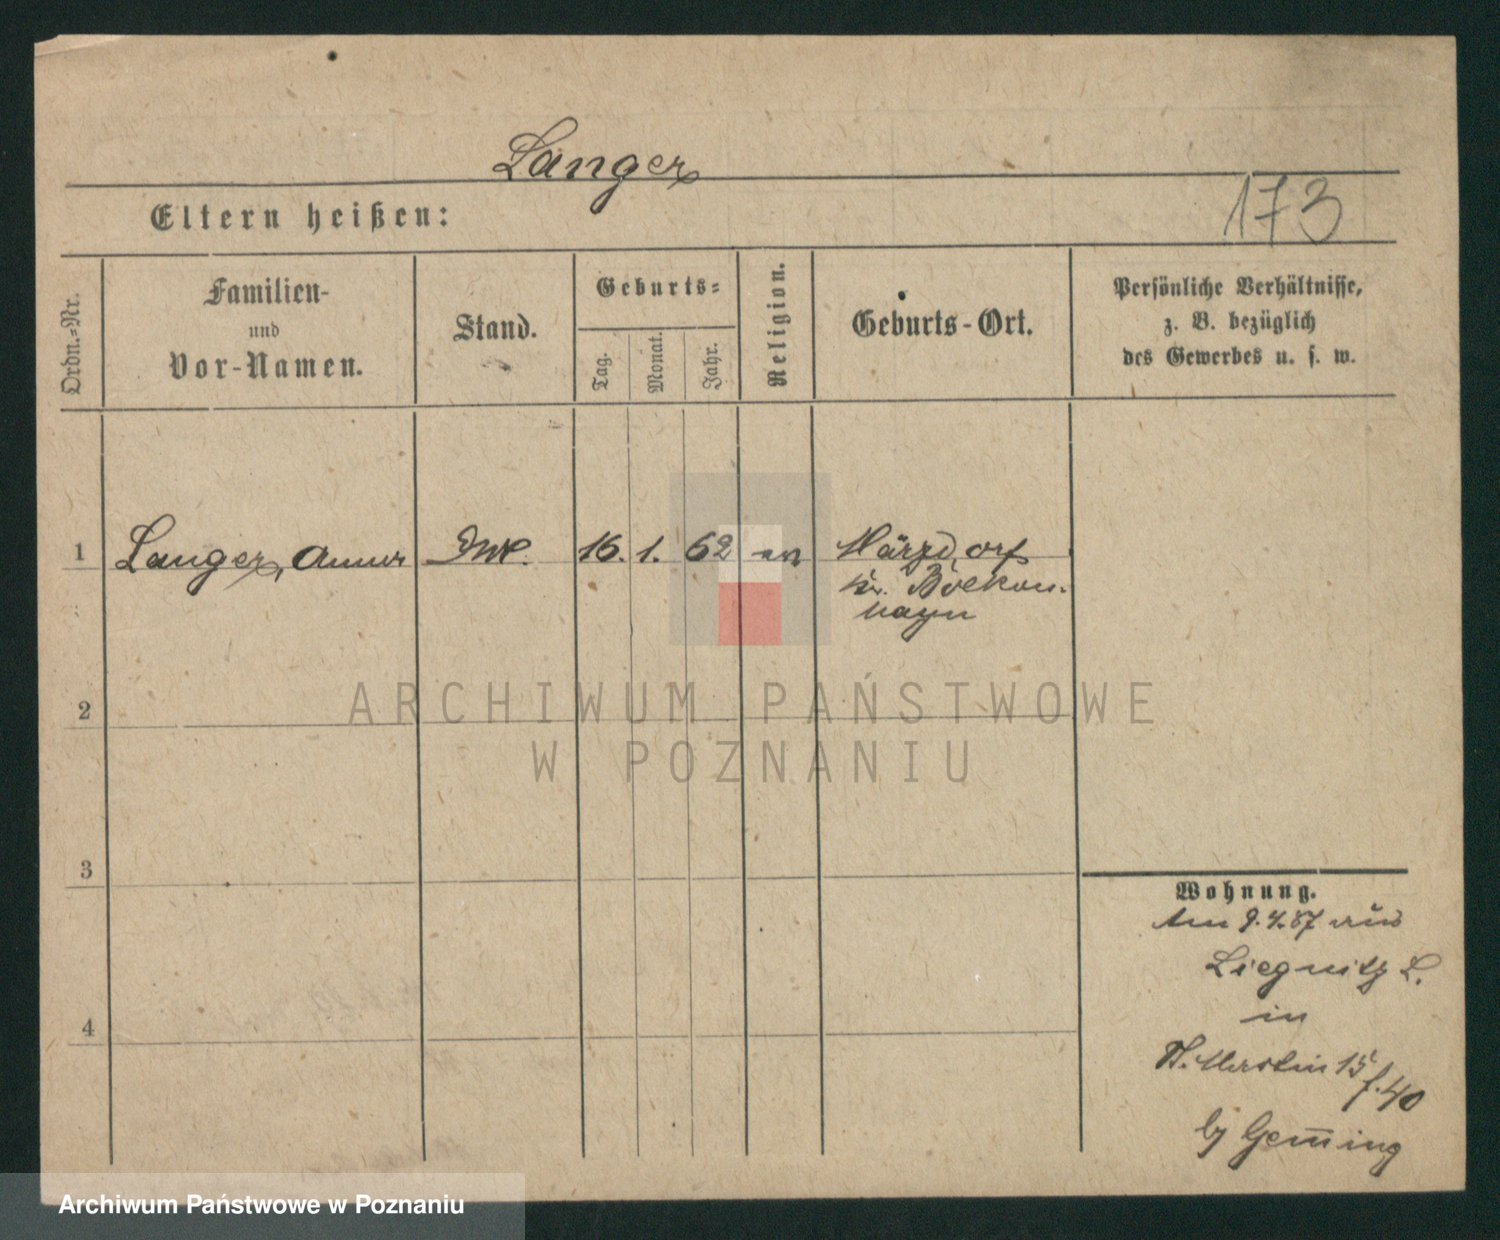 Langer
173
Eltern heißen:
Ordn.-Nr.
Familien-
und
Vor-Namen.
Stand.
Geburts-
Tag.
Monat.
Jahr.
Religion.
Geburts-Ort.
Persönliche Verhältnisse,
z. B. bezüglich
des Gewerbes u. s. w.
1 Langer, Anna 16. 1. 62 ev Märzdorf
Kr. Bolken-
hayn
ARCHIWUM PAŃSTWOWE
W POZNANIU
2
3
4
Wohnung.
Am 9.4.87 aus
Liegnitz L.
in
St. Martin 15
f. 40
by
Archiwum Państwowe w Poznaniu